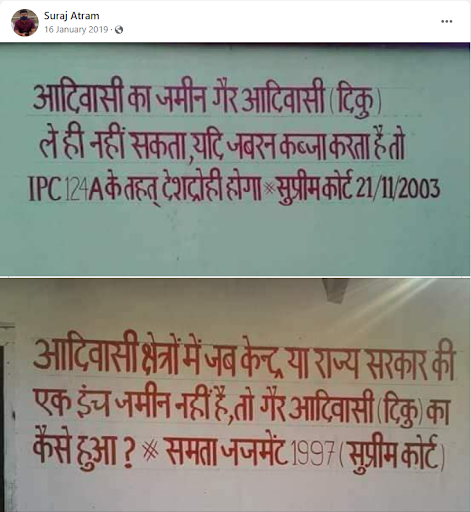 Suraj Atram
16 January 2019 ·
आदिवासी का जमीन गैर आदिवासी (दिकु)
ले ही नहीं सकता, यदि जबरन कब्जा करता है तो
IPC 124A के तहत् देशद्रोही होगा * सुप्रीम कोर्ट 21/11/2003
आदिवासी क्षेत्रों में जब केन्द्र या राज्य सरकार की
एक इंच जमीन नहीं है, तो गैर आदिवासी (दिकु) का
कैसे हुआ ? * समता जजमेंट 1997 ( सुप्रीम कोर्ट)